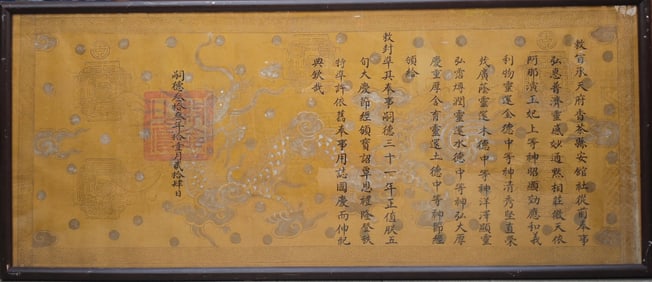 敕旨承天府香茶縣安館社從前奉事
弘惠普濟靈感妙通默相莊徽天依
阿那演玉妃上等神昭顯効應和義
利物靈運金德中等神清秀堅貞榮
茂庸蔭靈運木德中等神洋洋顯靈
弘霈津潤靈運水德中等神弘大厚
慶重厚含育靈運土德中等神節經
頒給
敕封準其奉事嗣德三十一年正值朕五
旬大慶節經頒寶詔覃恩禮隆登秩
特準許依舊奉事用誌國慶而伸祀
典欽哉
嗣德叁拾叁年拾壹月貳拾肆日